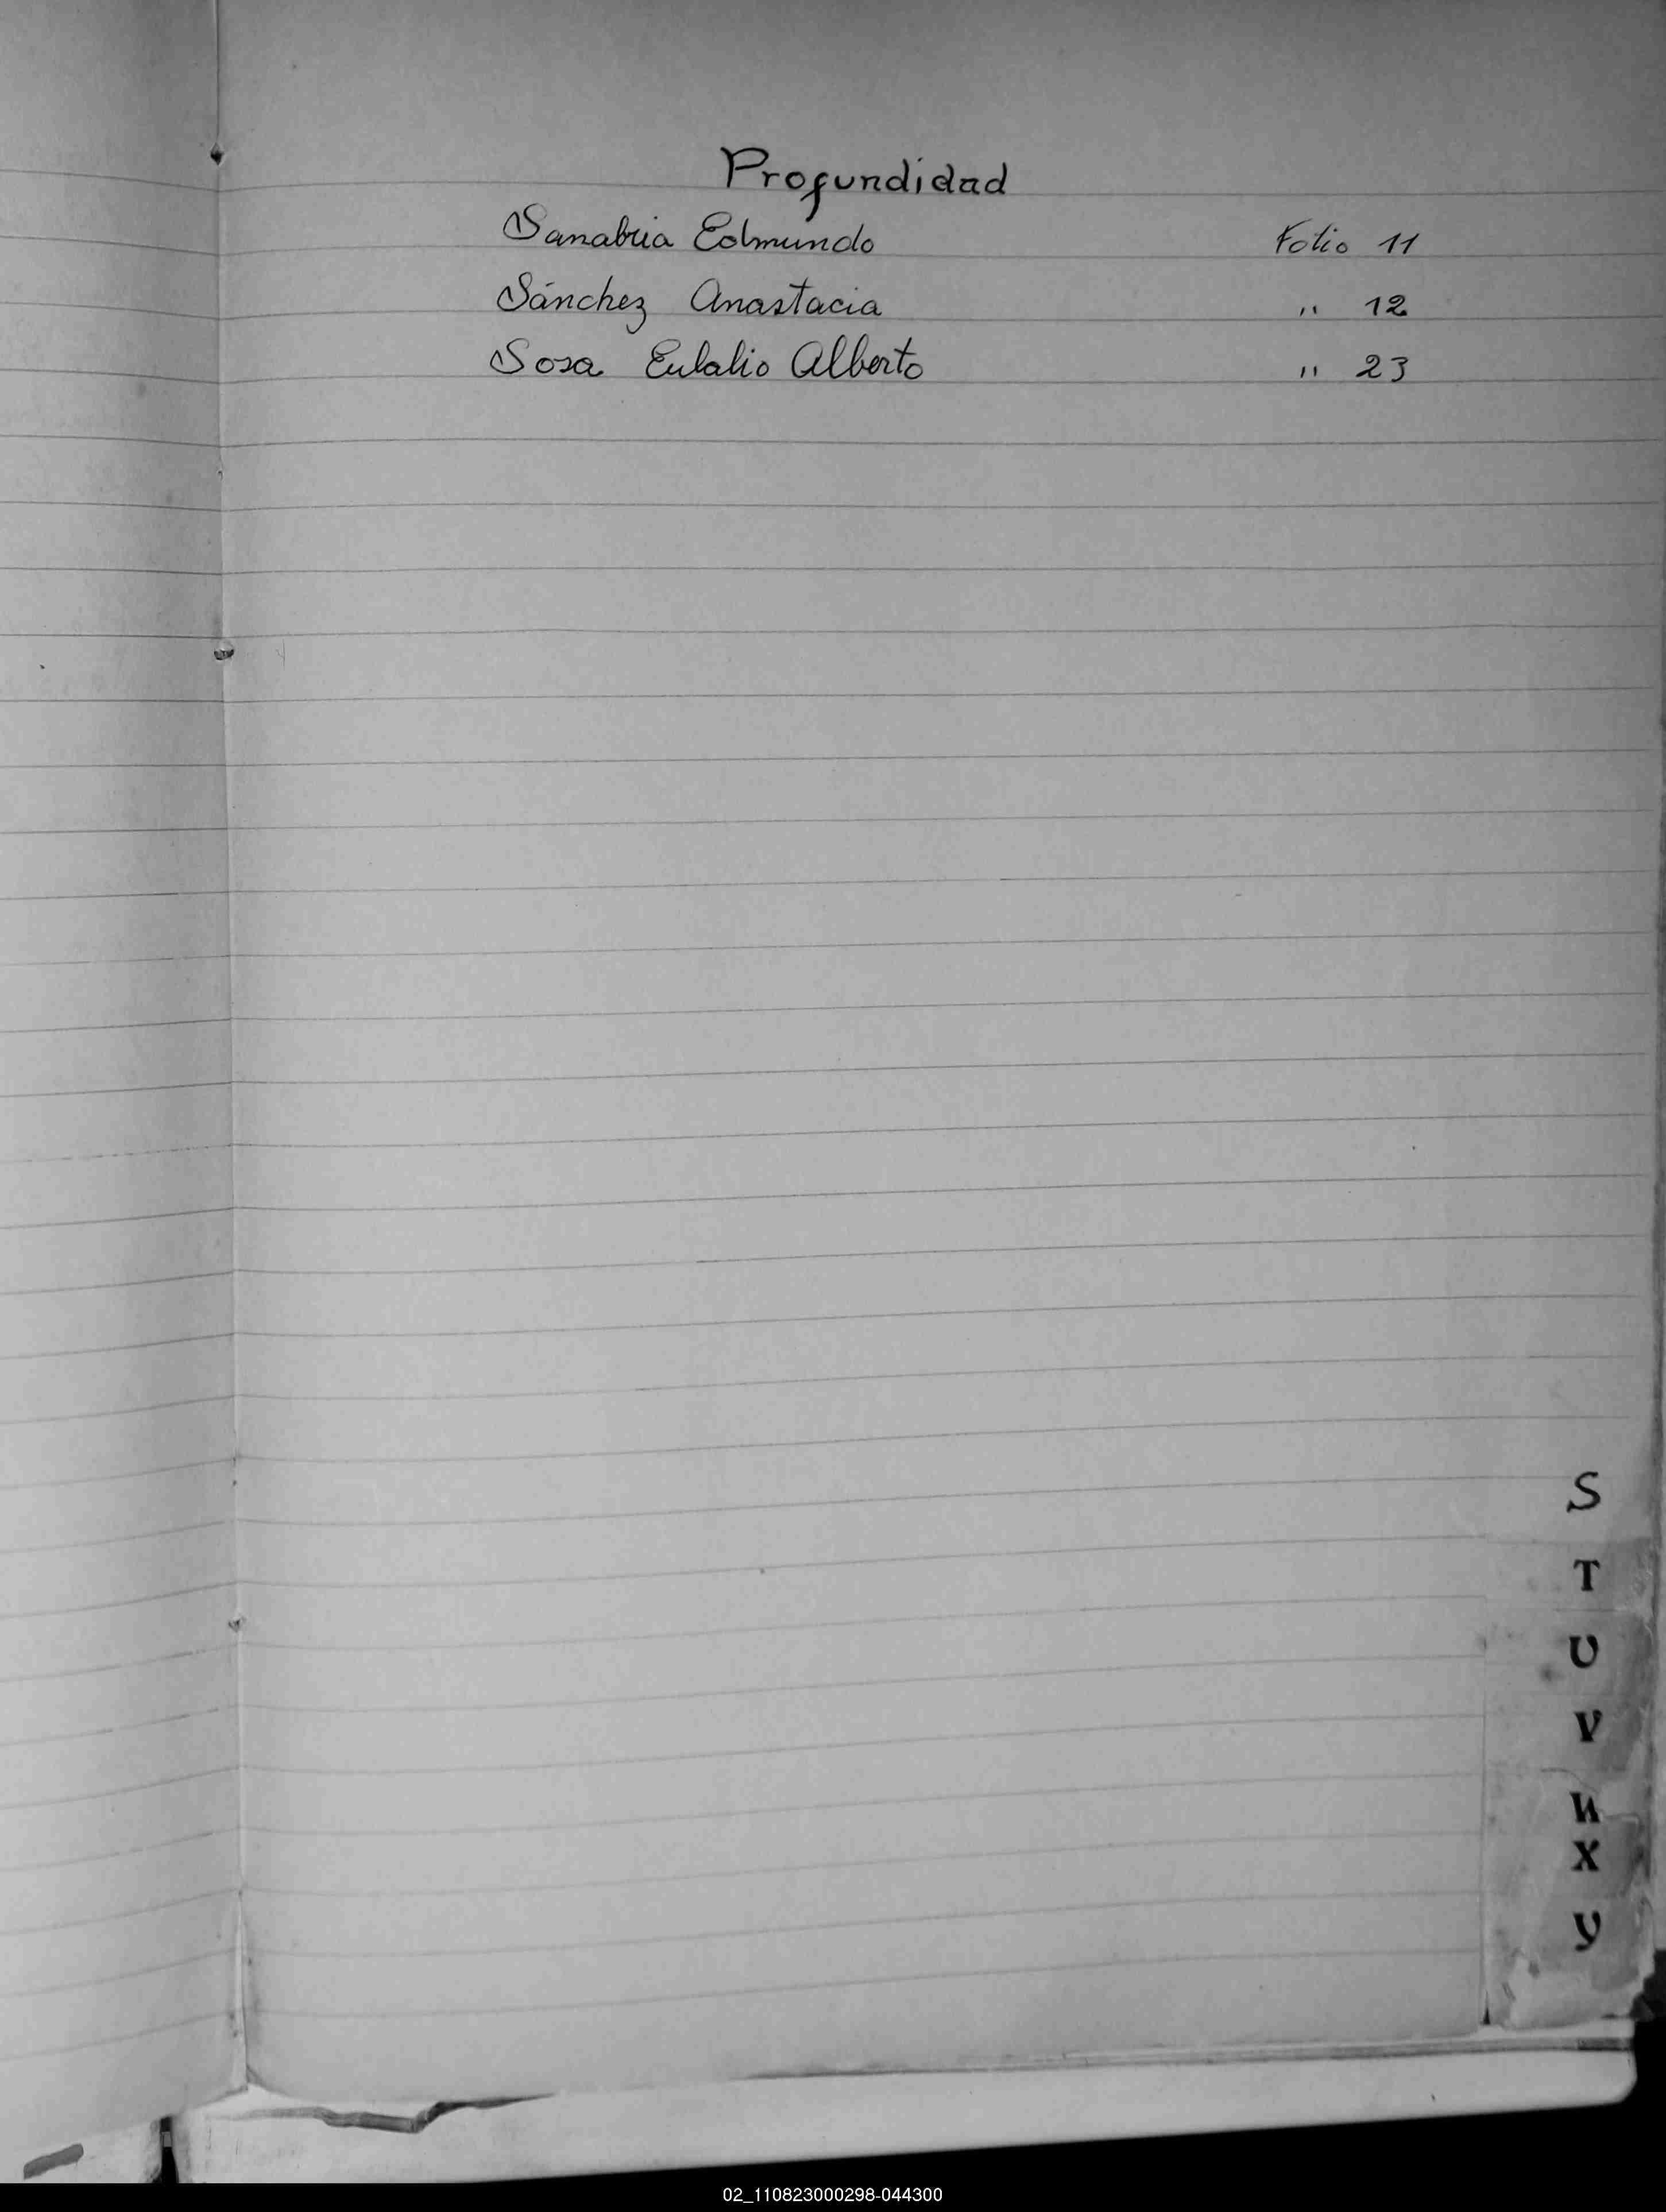 Profundidad
Sanabria Edmundo Folio 11
Sánchez Anastacia " 12
Sosa Eulalio Alberto " 23
S
T
U
V
W
X
Y
02_110823000298-044300